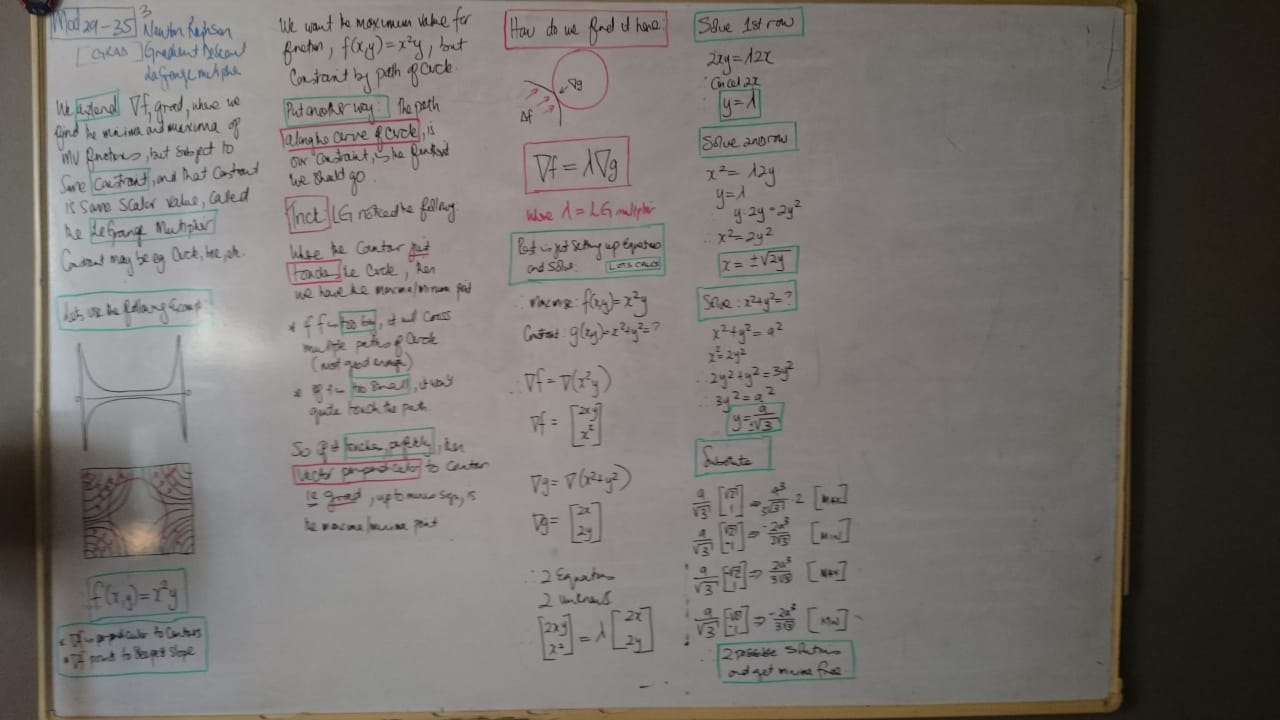 Mod 29-35
3
Newton Raphson
[GRAD] Gradient Descent
LaGrange multiplier
We extend ∇f, grad, where we
find the minima and maxima of
MV functions, but subject to
some constraint, and that constraint
is some scalar value, called
the LeGrange Multiplier
Constraint may be eg Circle, line, etc.
Lets use the following Example:
f(x,y)=x²y
* ∇f is perpendicular to Contours
* ∇f points to steepest slope
We want the maximum value for
function, f(x,y)=x²y, but
Constraint by path of Circle.
Put another way: the path
along the curve of circle, is
our constraint, is the
we should go.
LG noticed the following:
Where the Contour just
touches the Circle, then
we have the maxima/minima point
* if f is too big, it will cross
multiple paths of circle
(not good enough)
* if f is too small, it won't
quite touch the path.
So if it touches perfectly, then
vector perpendicular to contour
ie grad, up to minus sign, is
the maxima/minima point
How do we find it here:
∇g
Δf
∇f = λ∇g
where λ = LG multiplier
Rest is just setting up Equations
and solve. LOTS CALCS
∴ Maximise: f(x,y)=x²y
Constraint: g(x,y)=x²+y²=?
∴ ∇f = ∇(x²y)
∇f = [2xy
x²]
∇g = ∇(x²+y²)
∇g = [2x
2y]
∴ 2 Equations
2 unknowns
[2xy
x²] = λ [2x
2y]
Solve 1st row
2xy = λ2x
∴ Cancel 2x
∴ y = λ
Solve 2nd row
x² = λ2y
y = λ
∴ y·2y = 2y²
∴ x² = 2y²
x = ±√2y
Solve: x²+y²=?
x²+y² = a²
x² = 2y²
∴ 2y²+y² = 3y²
∴ 3y² = a²
y = a/±√3
a/√3 [√2 1] ⇒ a³/3√3 · 2 [MAX]
a/√3 [√2 -1] ⇒ -2a³/3√3 [MIN]
a/√3 [-√2 1] ⇒ 2a³/3√3 [MAX]
a/√3 [-√2 -1] ⇒ -2a³/3√3 [MIN]
∴ 2 possible solutions
and get minima free.